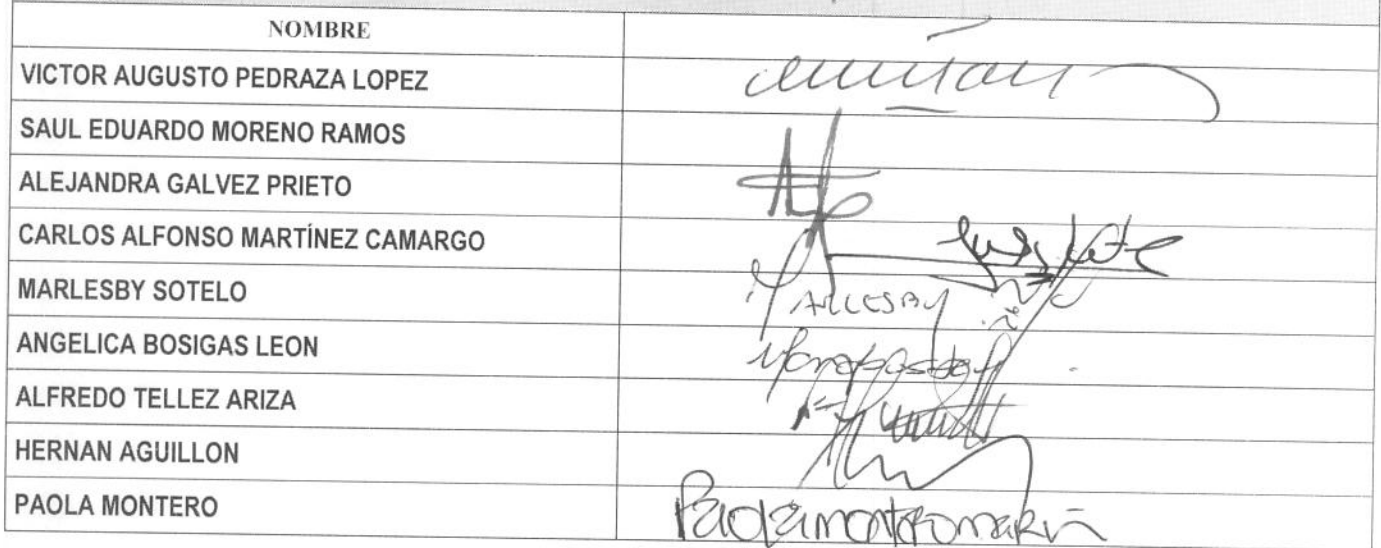 NOMBRE
VICTOR AUGUSTO PEDRAZA LOPEZ
SAUL EDUARDO MORENO RAMOS
ALEJANDRA GALVEZ PRIETO
CARLOS ALFONSO MARTÍNEZ CAMARGO
MARLESBY SOTELO MARLESBY
ANGELICA BOSIGAS LEON
ALFREDO TELLEZ ARIZA
HERNAN AGUILLON
PAOLA MONTERO Paola montero marin